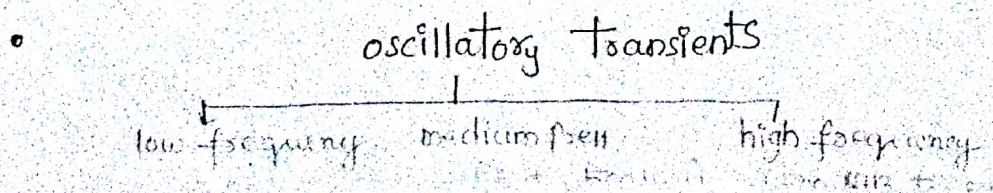 oscillatory transients
low-frequency medium freq high-frequency